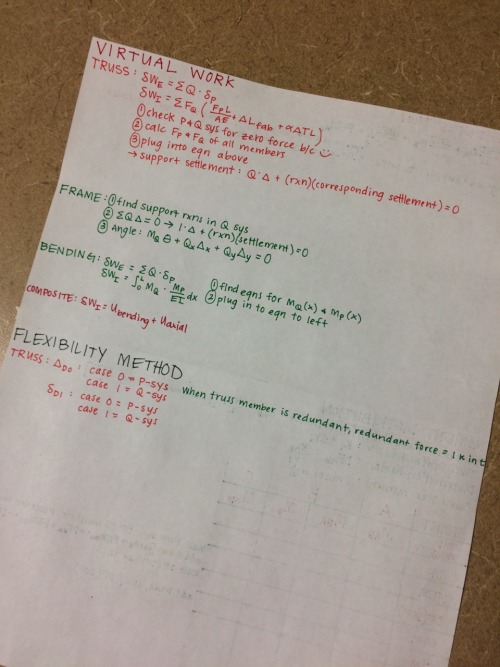 VIRTUAL WORK
TRUSS: δWE = ΣQ·δP
δWI = ΣFQ (FPL/AE + ΔLfab + αΔTL)
① check P&Q sys for zero force b/c ☺
② calc FP & FQ of all members
③ plug into eqn above
→ support settlement: Q·Δ + (rxn)(corresponding settlement) = 0
FRAME: ① find support rxns in Q sys
② ΣQΔ = 0 → 1·Δ + (rxn)(settlement) = 0
③ Angle: MQ θ + QxΔx + QyΔy = 0
BENDING: δWE = ΣQ·δP ① find eqns for MQ(x) & MP(x)
δWI = ∫₀ᴸ MQ · MP/EI dx ② plug in to eqn to left
COMPOSITE: δWI = Ubending + Uaxial
FLEXIBILITY METHOD
TRUSS: ΔD0: case 0 = P-sys
case 1 = Q-sys when truss member is redundant, redundant force = 1 k in t
δD1: case 0 = P-sys
case 1 = Q-sys